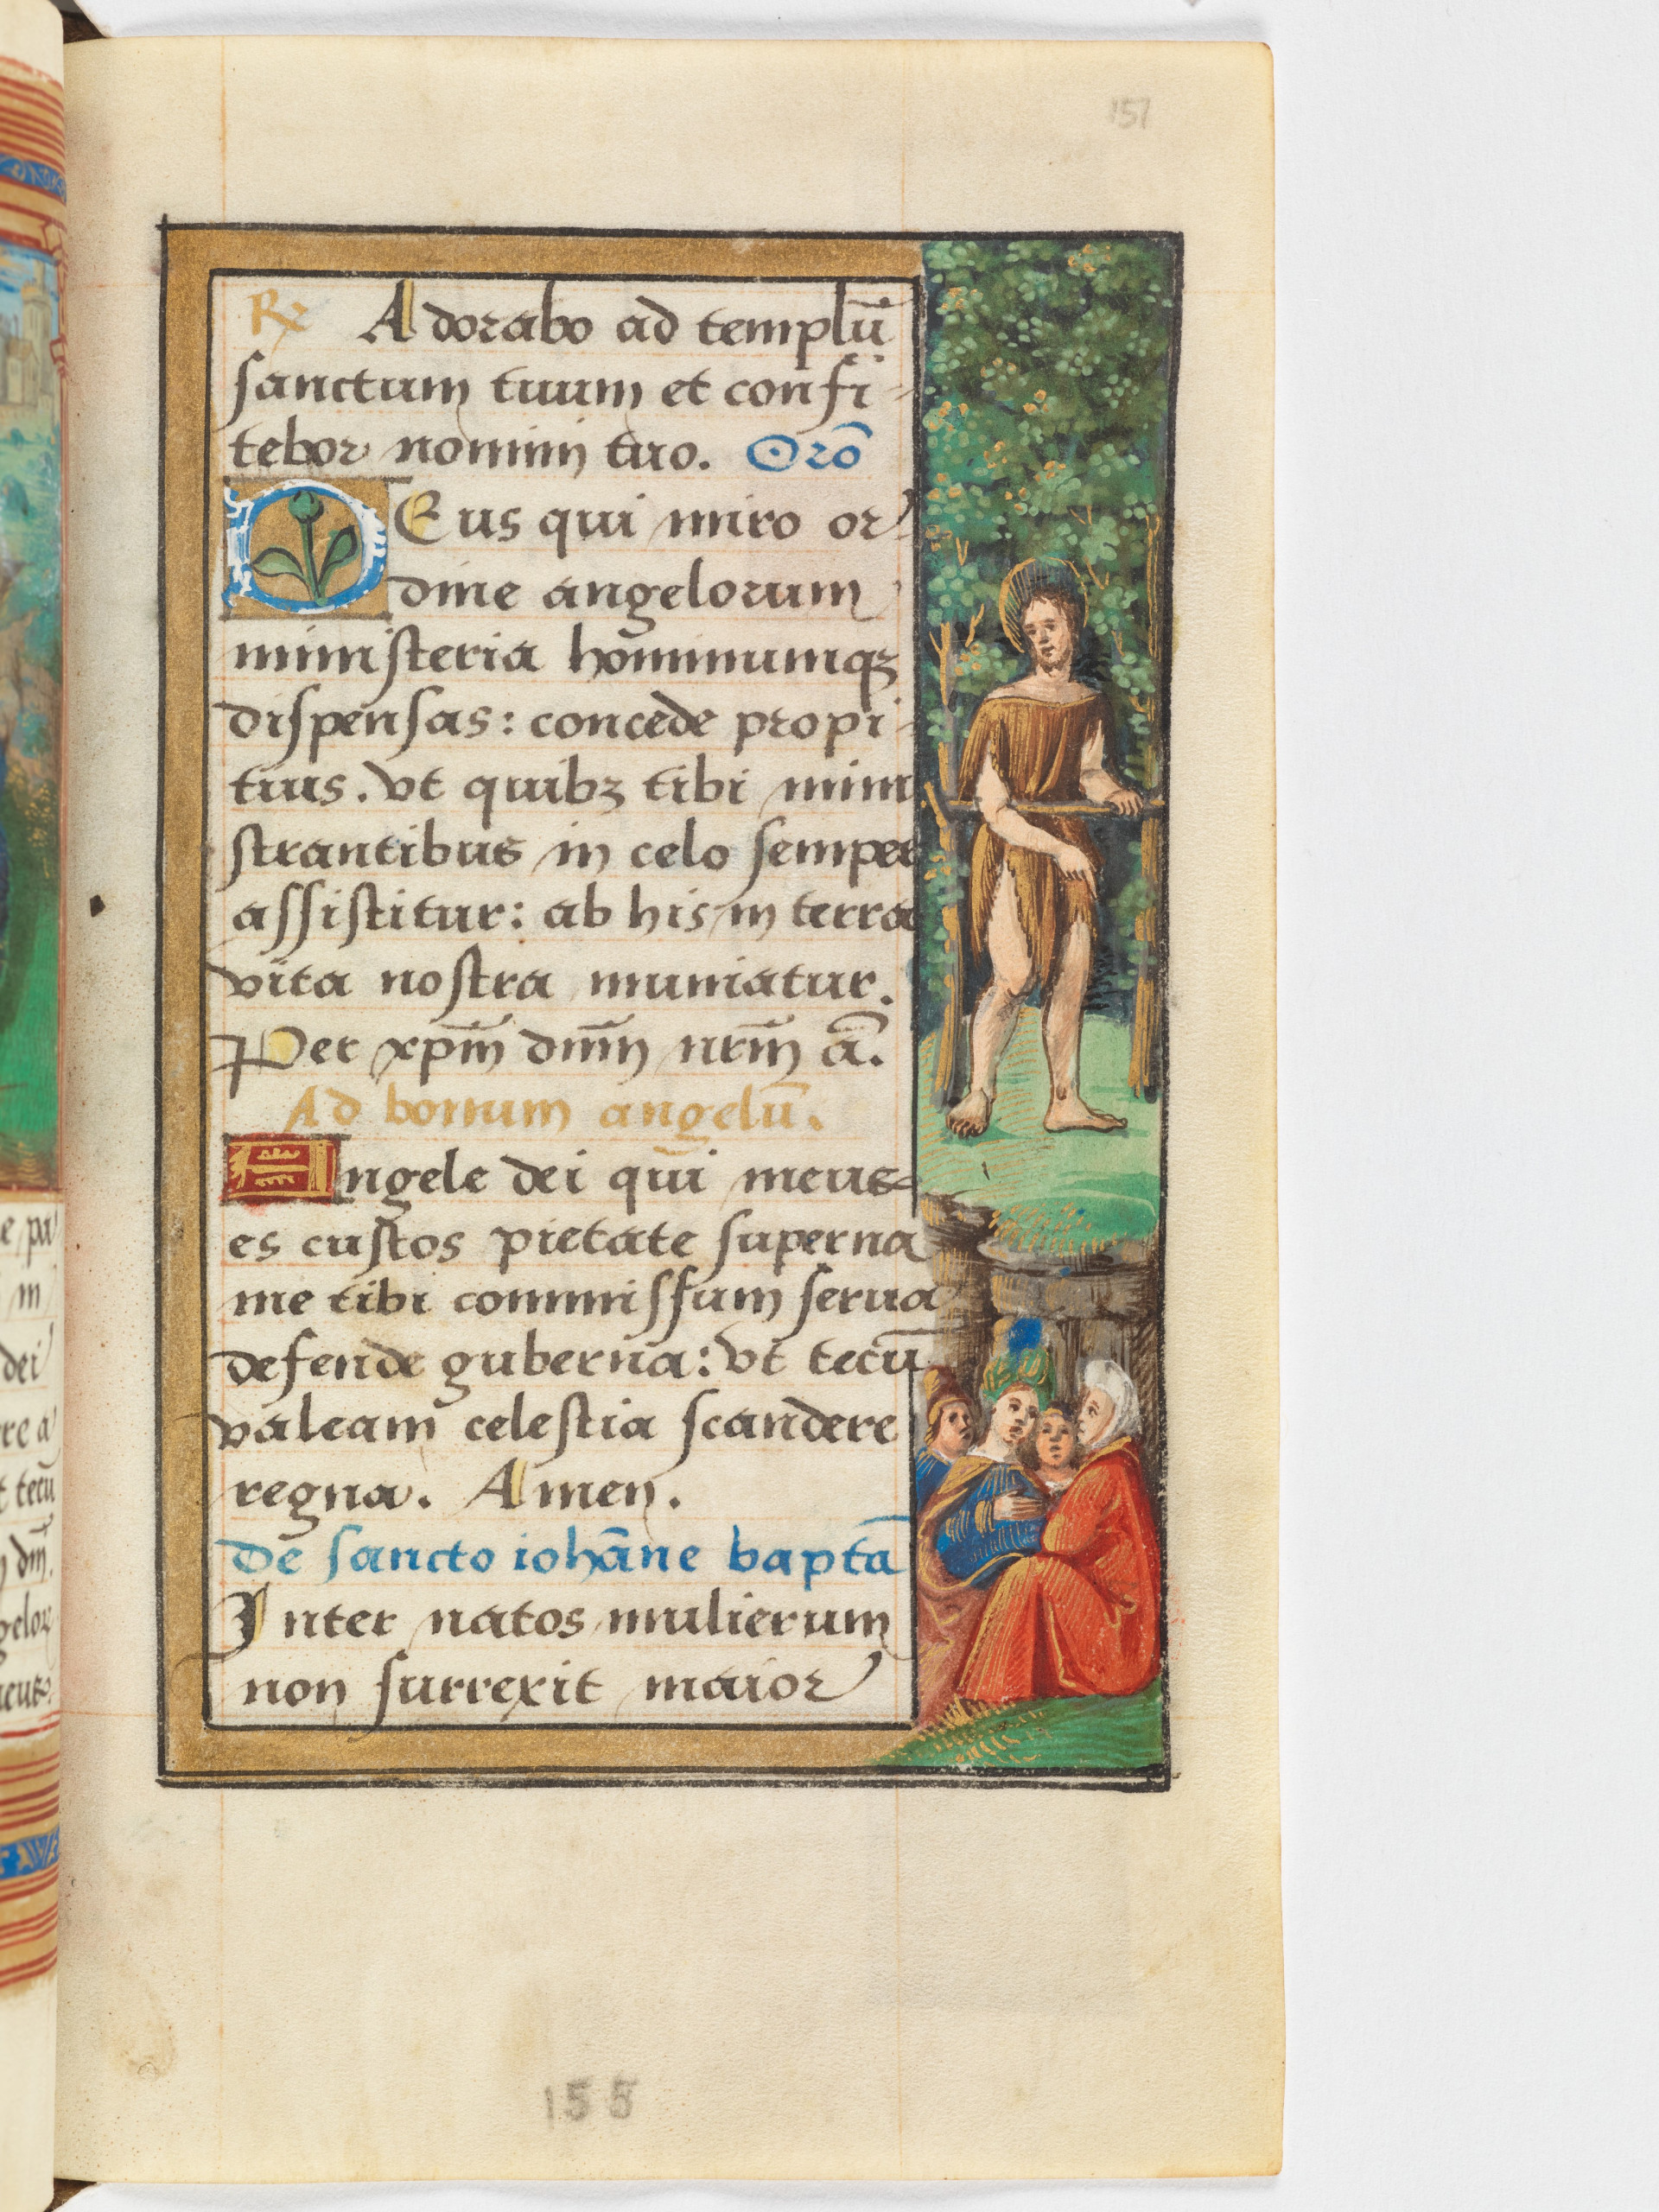 157
R Adorabo ad templū
sanctum tuum et confi-
tebor nomini tuo. Orō
DEus qui miro or-
dine angelorum
ministeria hominumqꝫ
dispensas: concede propi-
tius. vt quibꝫ tibi mini
strantibus in celo semper
assistitur: ab his in terra
vita nostra muniatur.
Per xpm̄ dnm̄ nrm̄ ā.
Ad bonum angelū.
Angele dei qui meus
es custos pietate superna
me tibi commissum serua
defende guberna: vt tecū
valeam celestia scandere
regna. Amen.
De sancto iohāne baptā
Inter natos mulierum
non surrexit maior
155